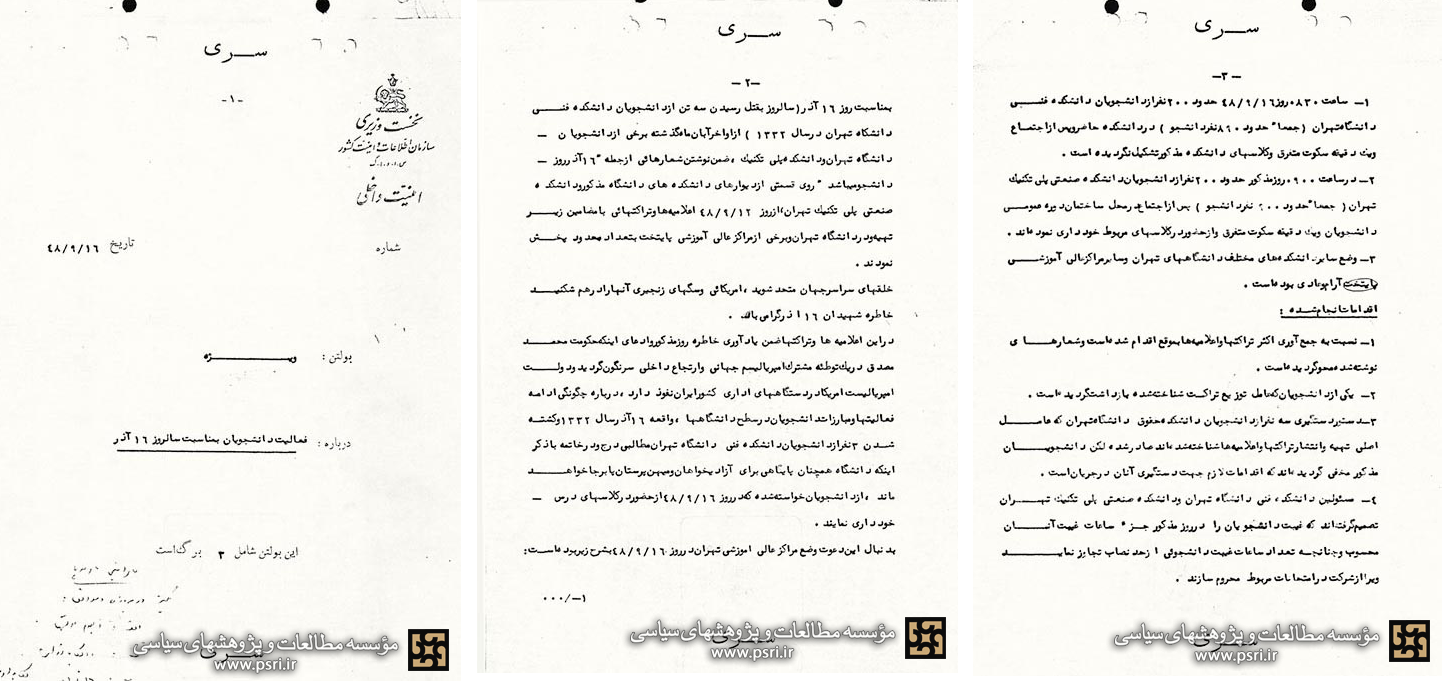 سری
-۱-
نخست وزیری
سازمان اطلاعات و امنیت کشور
س.ا.و.ا.ک
امنیت داخلی
شماره
تاریخ ۴۸/۹/۱۶
بولتن : ویژه
درباره : فعالیت دانشجویان بمناسبت سالروز ۱۶ آذر
این بولتن شامل ۳ برگ است
سری
مؤسسه مطالعات و پژوهشهای سیاسی
www.psri.ir
سری
-۲-
بمناسبت روز ۱۶ آذر (سالروز بقتل رسیدن سه تن از دانشجویان دانشکده فنی
دانشگاه تهران در سال ۱۳۳۲ ) از اواخر آبان ماه گذشته برخی از دانشجویان -
دانشگاه تهران و دانشکده پلی تکنیک ، ضمن نوشتن شعارهائی از جمله "۱۶ آذر روز -
دانشجو میباشد " روی قسمتی از دیوارهای دانشکده های دانشگاه مذکور و دانشکده
صنعتی پلی تکنیک تهران، از روز ۴۸/۹/۱۲ اعلامیه ها و تراکتهائی با مضامین زیر
تهیه و در دانشگاه تهران و برخی از مراکز عالی آموزشی پایتخت بتعداد محدود پخش
نمودند .
خلقهای سراسر جهان متحد شوید ، امریکائی و سگهای زنجیری آنها را در هم شکنید
خاطره شهیدان ۱۶ اذر گرامی باد .
در این اعلامیه ها و تراکتها ضمن یادآوری خاطره روز مذکور و ادعای اینکه حکومت محمد
مصدق در یک توطئه مشترک امپریالیسم جهانی و ارتجاع داخلی سرنگون گردید و دولت
امپریالیست امریکا در دستگاههای اداری کشور ایران نفوذ دارد ، درباره چگونگی ادامه
فعالیتها و مبارزات دانشجویان در سطح دانشگاهها ، واقعه ۱۶ آذر سال ۱۳۳۲ و کشته
شدن ۳ نفر از دانشجویان دانشکده فنی دانشگاه تهران مطالبی درج و در خاتمه با ذکر
اینکه دانشگاه همچنان پایگاهی برای آزادیخواهان و میهن پرستان پابرجا خواهد
ماند ، از دانشجویان خواسته شده که در روز ۴۸/۹/۱۶ از حضور در کلاسهای درس -
خودداری نمایند .
بدنبال این دعوت وضع مراکز عالی اموزشی تهران در روز ۴۸/۹/۱۶ بشرح زیر بوده است :
۱-/۰۰۰
سری
مؤسسه مطالعات و پژوهشهای سیاسی
www.psri.ir
سری
-۳-
۱- ساعت ۰۸۳۰ روز ۴۸/۹/۱۶ حدود ۲۰۰ نفر از دانشجویان دانشکده فنی
دانشگاه تهران ( جمعا" حدود ۸۹۰ نفر دانشجو ) در دانشکده حاضر و پس از اجتماع
و یک دقیقه سکوت متفرق و کلاسهای دانشکده مذکور تشکیل نگردیده است .
۲- در ساعت ۰۹۰۰ روز مذکور حدود ۲۰۰ نفر از دانشجویان دانشکده صنعتی پلی تکنیک
تهران ( جمعا" حدود نفر دانشجو ) پس از اجتماع در محل ساختمان دوره عمومی
دانشجویان و یک دقیقه سکوت متفرق و از حضور در کلاسهای مربوط خودداری نموده اند .
۳- وضع سایر دانشکده های مختلف دانشگاههای تهران و سایر مراکز عالی آموزشی
پایتخت آرام و عادی بوده است .
اقدامات انجام شده :
۱- نسبت به جمع آوری اکثر تراکتها و اعلامیه ها بموقع اقدام شده است و شعارهای
نوشته شده محو گردیده است .
۲- یکی از دانشجویان که عامل توزیع تراکت شناخته شده بازداشت گردیده است .
۳- دستور دستگیری سه نفر از دانشجویان دانشکده حقوق دانشگاه تهران که عامل
اصلی تهیه و انتشار تراکتها و اعلامیه ها شناخته شده اند صادر شده لکن دانشجویان
مذکور مخفی گردیده اند که اقدامات لازم جهت دستگیری آنان در جریان است .
۴- مسئولین دانشکده فنی دانشگاه تهران و دانشکده صنعتی پلی تکنیک تهران
تصمیم گرفته اند که غیبت دانشجویان را در روز مذکور جزء ساعات غیبت آنان
محسوب و چنانچه تعداد ساعات غیبت دانشجوئی از حد نصاب تجاوز نماید
ویرا از شرکت در امتحانات مربوط محروم سازند .
سری
مؤسسه مطالعات و پژوهشهای سیاسی
www.psri.ir